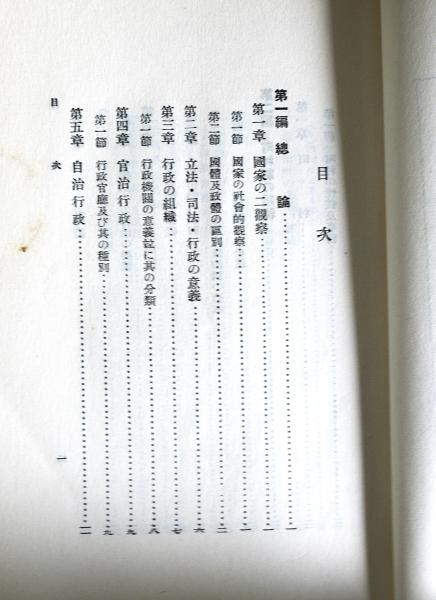 目次
第一編 總論…………一
第一章 國家の二觀察…………一
第一節 國家の社會的觀察…………一
第二節 國體及政體の區別…………二
第二章 立法・司法・行政の意義…………六
第三章 行政の組織…………七
第一節 行政機關の意義竝に其の分類…………八
第四章 官治行政…………九
第一節 行政官廳及び其の種別…………九
第五章 自治行政…………二
目次
一